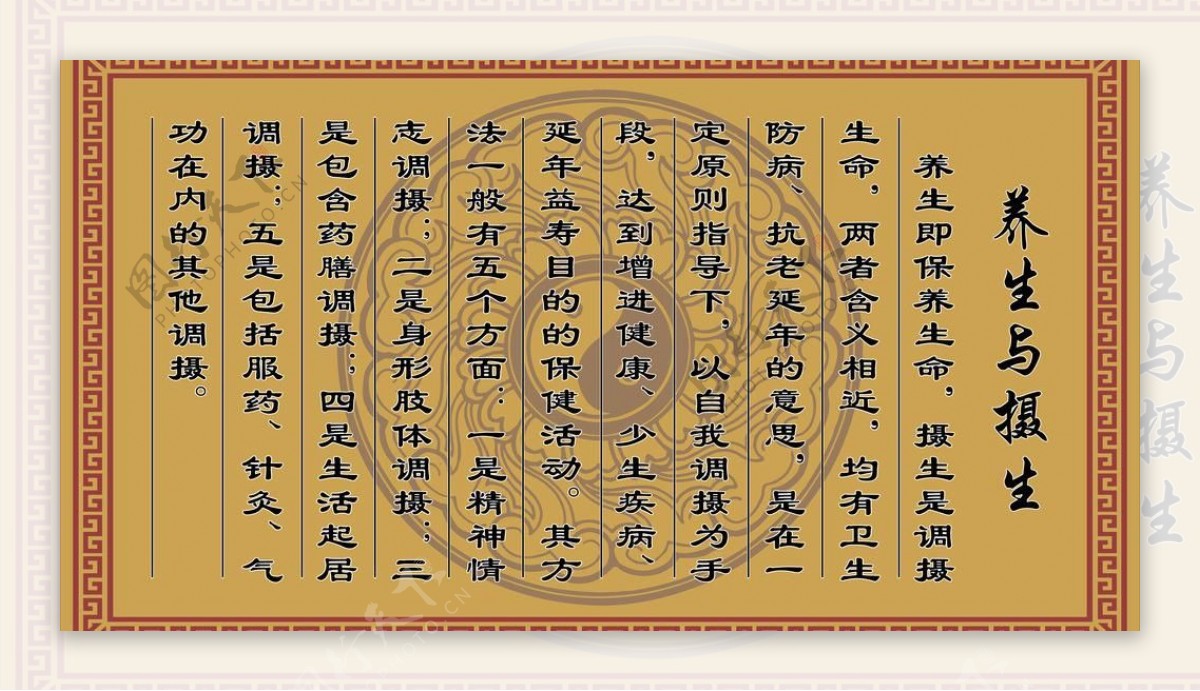 养生与摄生
养生即保养生命，摄生是调摄
生命，两者含义相近，均有卫生
防病、抗老延年的意思，是在一
定原则指导下，以自我调摄为手
段，达到增进健康、少生疾病、
延年益寿目的的保健活动。其方
法一般有五个方面：一是精神情
志调摄；二是身形肢体调摄；三
是包含药膳调摄；四是生活起居
调摄；五是包括服药、针灸、气
功在内的其他调摄。
养生与摄生